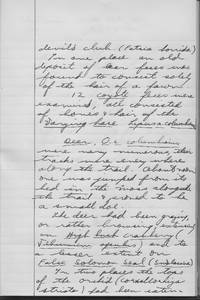 devil's club (Fatsia horrida)
In one place an old
deposit of bear feces was
found to consist solely
of the hair of a fawn.
12 coyote feces were
examined, all consisted
of bones & hair of the
Varying hare
Deer. O. c. columbianus
were very numerous, their
tracks were every where
along the trail. About noon
one was jumped from its
bed in the moss alongside
the trail & proved to be
a small doe.
The deer had been grazing,
or rather browsing
High bush Cranberry
(Viburnum opulus) and to
a lesser extent on
False Solomon Seal (Smilacina)
In two places the tops
of the orchid (Corallorhiza
striata) had been eaten